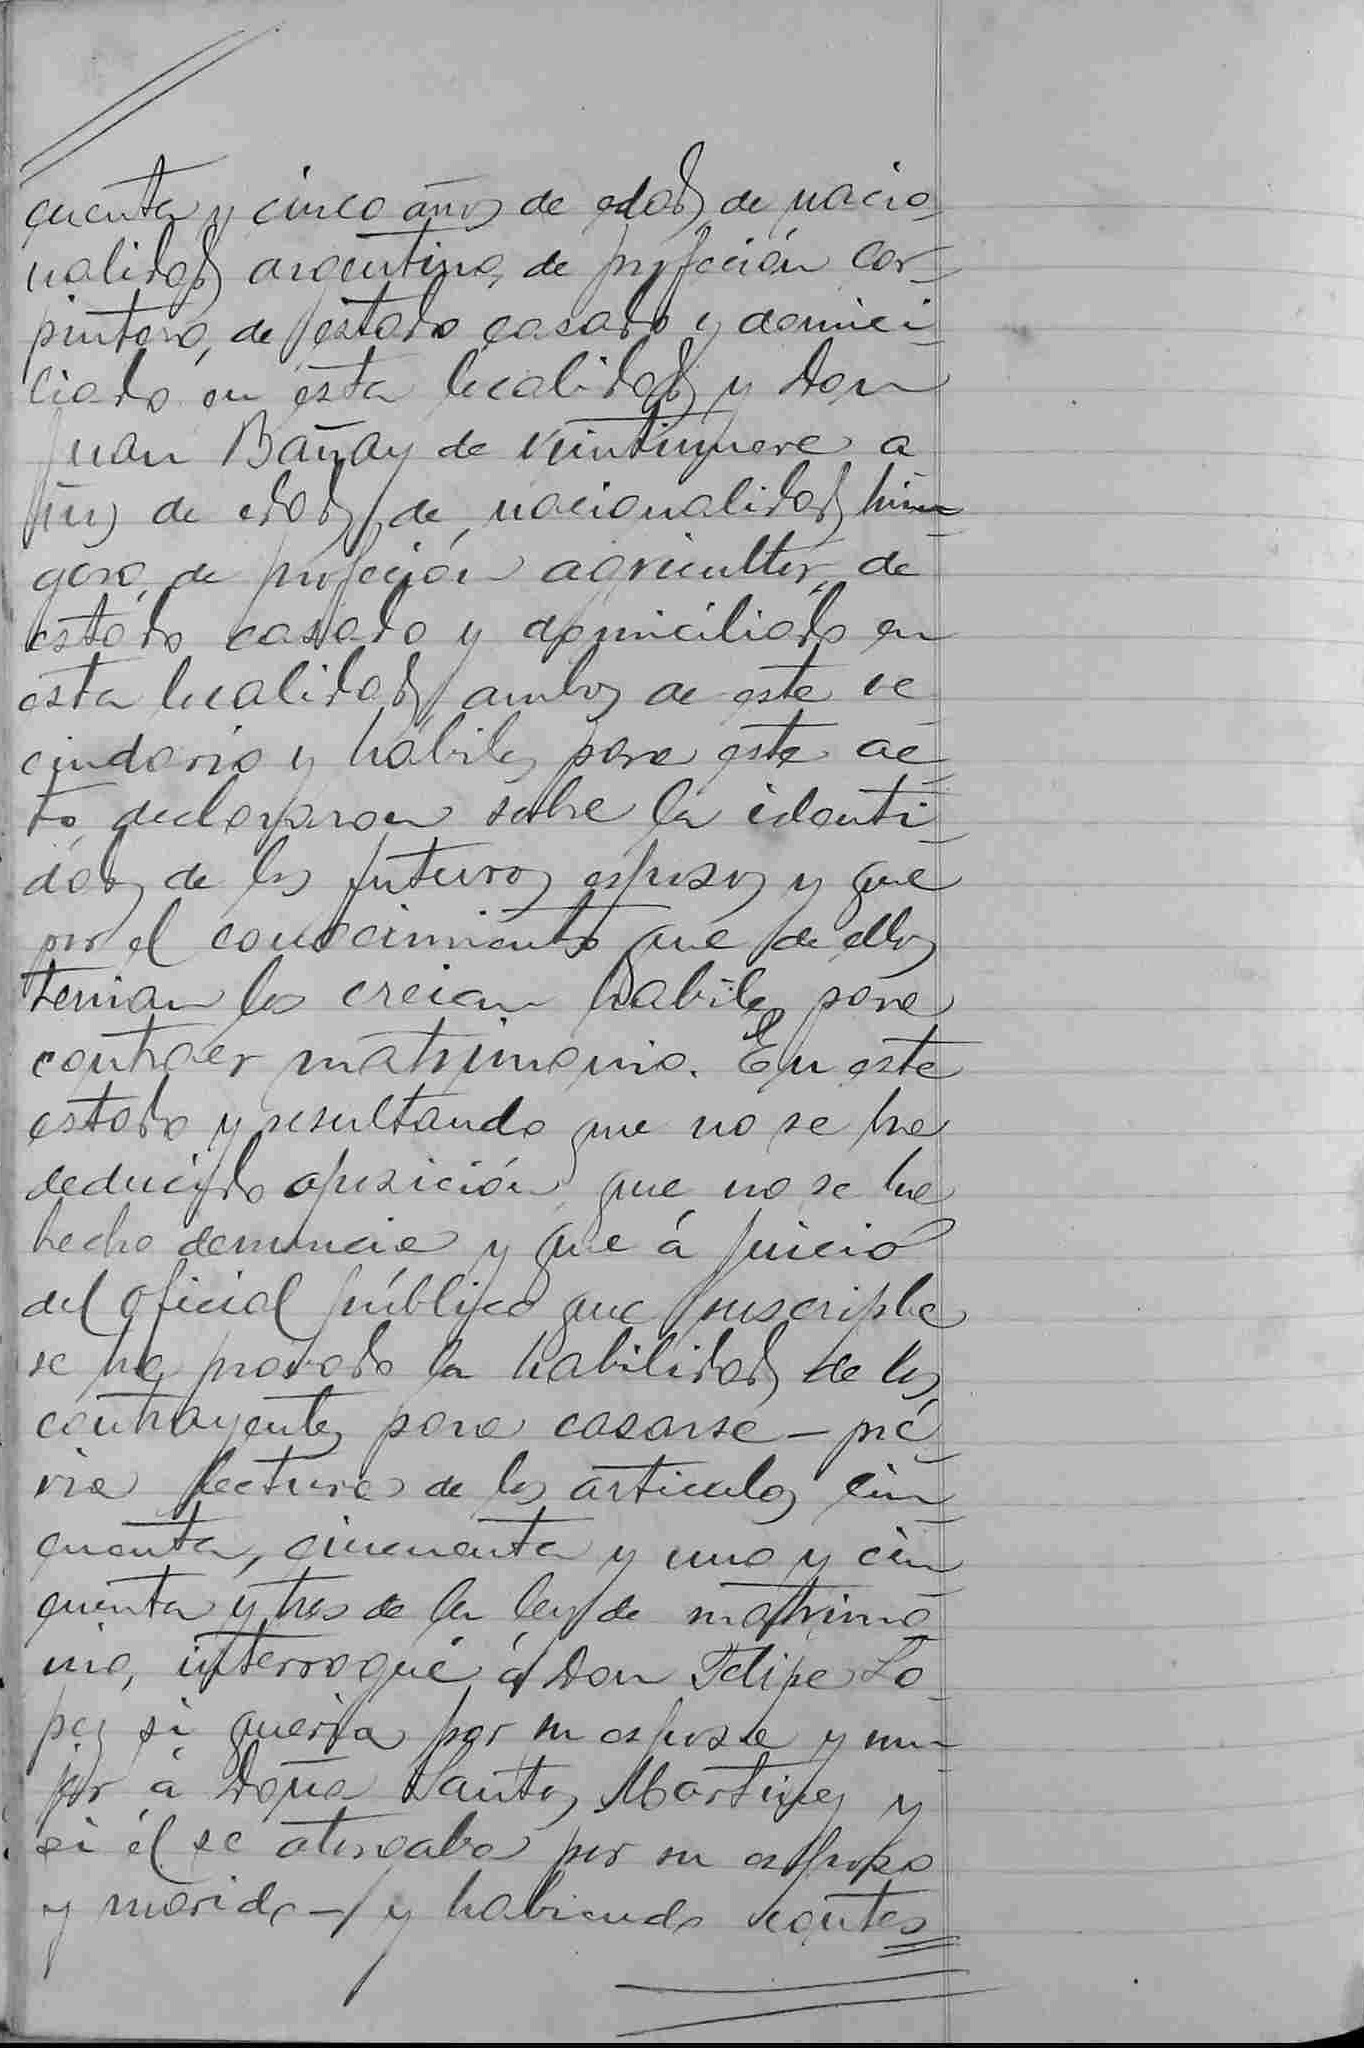 cuenta y cinco años de edad, de nacio
nalidad argentina, de profeción car-
pintero, de estado casado y domici-
ciado en esta localidad y Don
Juan Bañay de veintinueve a
ños de edad, de nacionalidad hún-
gara, de profeción agricultor, de
estado casado y domiciliado en
esta localidad, ambos de este ve-
cindario y habiles para este ac-
to, declararon sobre la identi-
dad de los futuros esposos y que
por el conocimiento que de ellos
tenian los creian habiles para
contraer matrimonio. En este
estado y resultando que no se ha
deducido oposición, que no se ha
hecho denuncia y que á juicio
del oficial público que suscripbe
se ha provado la habilidad de los
contrayentes para casarse – pré-
via lectura de los articulos cin-
cuenta, cincuenta y uno y cin-
cuenta y tres de la ley de matrimo-
nio, interrogué á Don Felipe Lo-
pez si queria por su esposa y mu-
jer á Doña Santos Martinez y
si él se otorgaba por su esposo
y marido – y habiendo contes